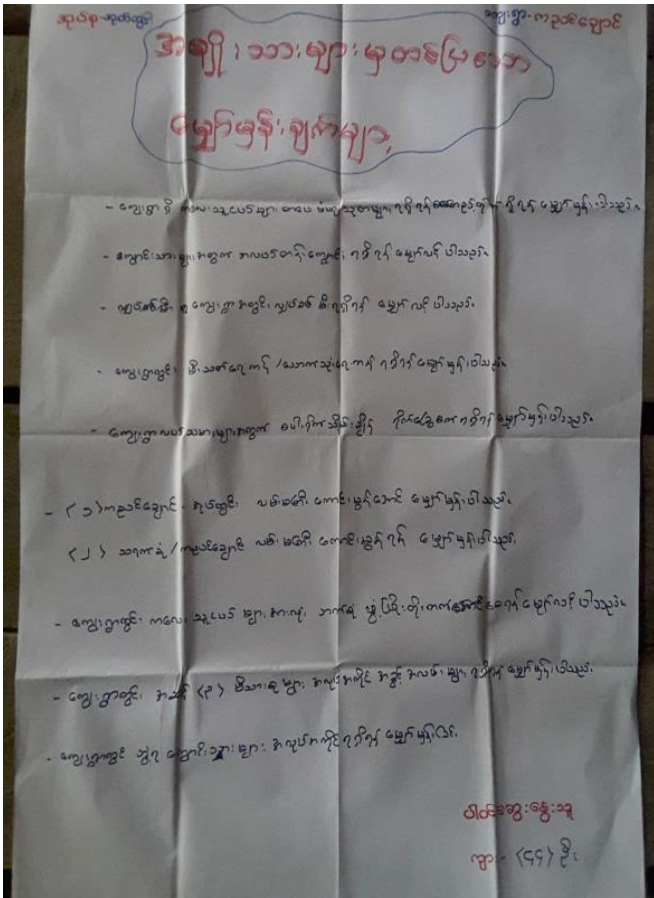 အုပ်စု-အုတ်တွင်း
ကျေးရွာ-ကညင်ချောင်
အမျိုးသားများမှတင်ပြသော
မျှော်မှန်းချက်များ
- ကျေးရွာရှိ ကလေးသူငယ်များ ရရှိရန် မျှော်မှန်းပါသည်။
- ကျောင်းသားများအတွက် အလယ်တန်းကျောင်း ရရှိရန် မျှော်လင့်ပါသည်။
- ကျေးရွာအတွင်း လျှပ်စစ်မီးရရှိရန် မျှော်လင့်ပါသည်။
- ကျေးရွာတွင် မီးသတ်ရေကန် /သောက်သုံးရေကန် ရရှိရန် မျှော်မှန်းပါသည်။
- ကျေးရွာလယ်သမားများအတွက် ရရှိရန် မျှော်မှန်းပါသည်။
- (၁) ကညင်ချောင် - အုပ်တွင်း လမ်းမတော် ကောင်းမွန်အောင် မျှော်မှန်းပါသည်။
(၂) သရက်အုံ / ကညင်ချောင် လမ်းမတော် ကောင်းမွန်ရန် မျှော်မှန်းပါသည်။
- ကျေးရွာတွင် ကလေးသူငယ်များအားလုံး ဘက်စုံဖွံ့ဖြိုးတိုးတက်စေရန် မျှော်လင့်ပါသည်။
- ကျေးရွာတွင် မိသားစုများ အလုပ်အကိုင် အခွင့်အလမ်းများ ရရှိရန် မျှော်မှန်းပါသည်။
- ကျေးရွာတွင် ဘွဲ့ရကျောင်းသူများ အလုပ်အကိုင်ရရှိရန် မျှော်မှန်းခြင်း
ပါဝင်ဆွေးနွေးသူ
ကျား - (၄၄) ဦး